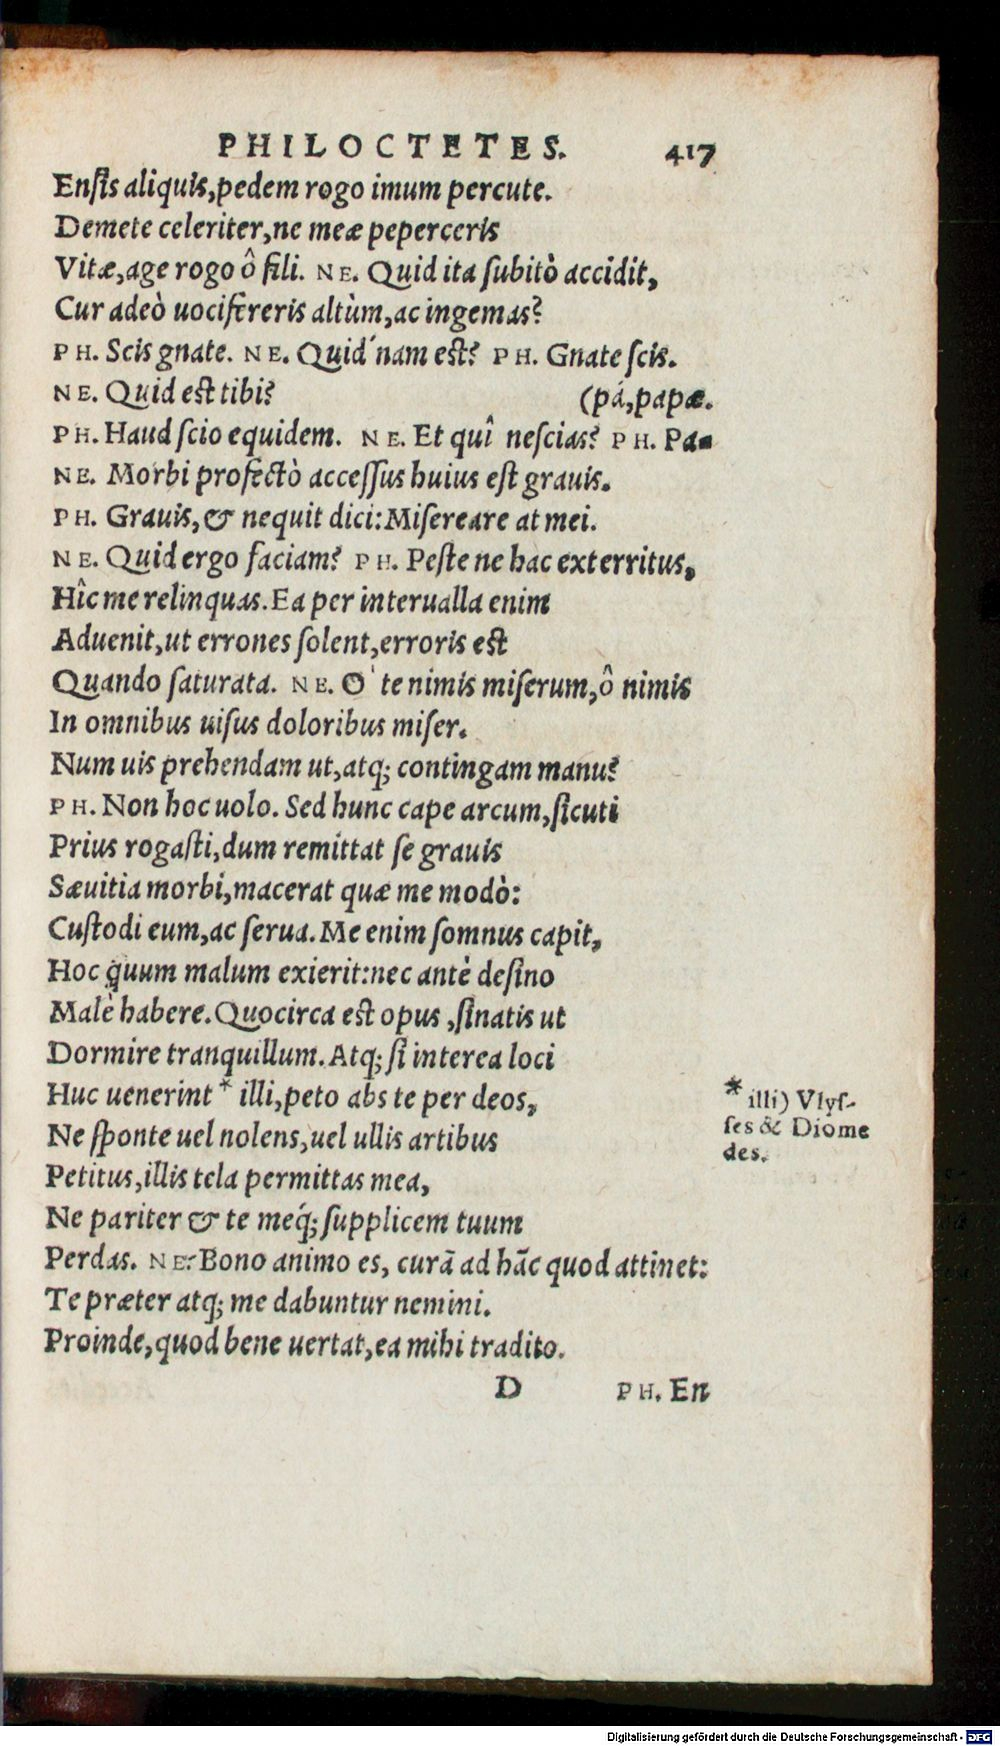 PHILOCTETES. 417
Ensis aliquis, pedem rogo imum percute.
Demete celeriter, ne meæ peperceris
Vitæ, age rogo ô fili. NE. Quid ita subitò accidit,
Cur adeò uocifereris altùm, ac ingemas?
PH. Scis gnate. NE. Quid'nam est? PH. Gnate scis.
NE. Quid est tibi? (pá, papæ.
PH. Haud scio equidem. NE. Et quî nescias? PH. Pa-
NE. Morbi profectò accessus huius est grauis.
PH. Grauis, & nequit dici: Misereare at mei.
NE. Quid ergo faciam? PH. Peste ne hac exterritus,
Hîc me relinquas. Ea per interualla enim
Aduenit, ut errones solent, erroris est
Quando saturata. NE. O' te nimis miserum, ô nimis
In omnibus uisus doloribus miser.
Num uis prehendam ut, atq; contingam manu?
PH. Non hoc uolo. Sed hunc cape arcum, sicuti
Prius rogasti, dum remittat se grauis
Sæuitia morbi, macerat quæ me modò:
Custodi eum, ac serua. Me enim somnus capit,
Hoc quum malum exierit: nec antè desino
Malè habere. Quocirca est opus, sinatis ut
Dormire tranquillum. Atq; si interea loci
Huc uenerint * illi, peto abs te per deos,
Ne sponte uel nolens, uel ullis artibus
Petitus, illis tela permittas mea,
Ne pariter & te meq́; supplicem tuum
Perdas. NE. Bono animo es, curā ad hāc quod attinet:
Te præter atq; me dabuntur nemini.
Proinde, quod bene uertat, ea mihi tradito.
D PH. En
* illi) Vlys-
ses & Diome
des.
Digitalisierung gefördert durch die Deutsche Forschungsgemeinschaft - DFG